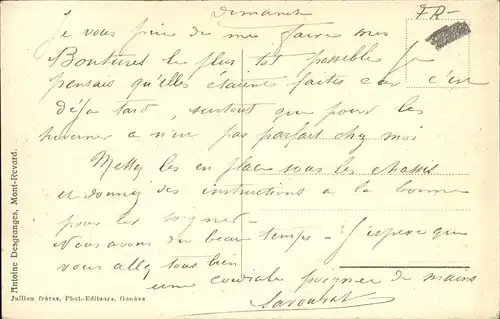 Dimanche
FR-
Je vous prie de me faire mes
Boutures le plus tot possible Je
pensais qu'elles étaient faites car c'est
déja tard, surtout que pour les
hiverner a n'est pas parfait chez moi
Mettez les en place sous les chassis
et donnez des instructions a la bonne
pour les soigner -
Nous avons du beau temps - J'espere que
vous allez tous bien
une cordiale poignee de mains
Antoine Desgranges, Mont-Revard.
Jullien frères, Phot.-Editeurs, Genève